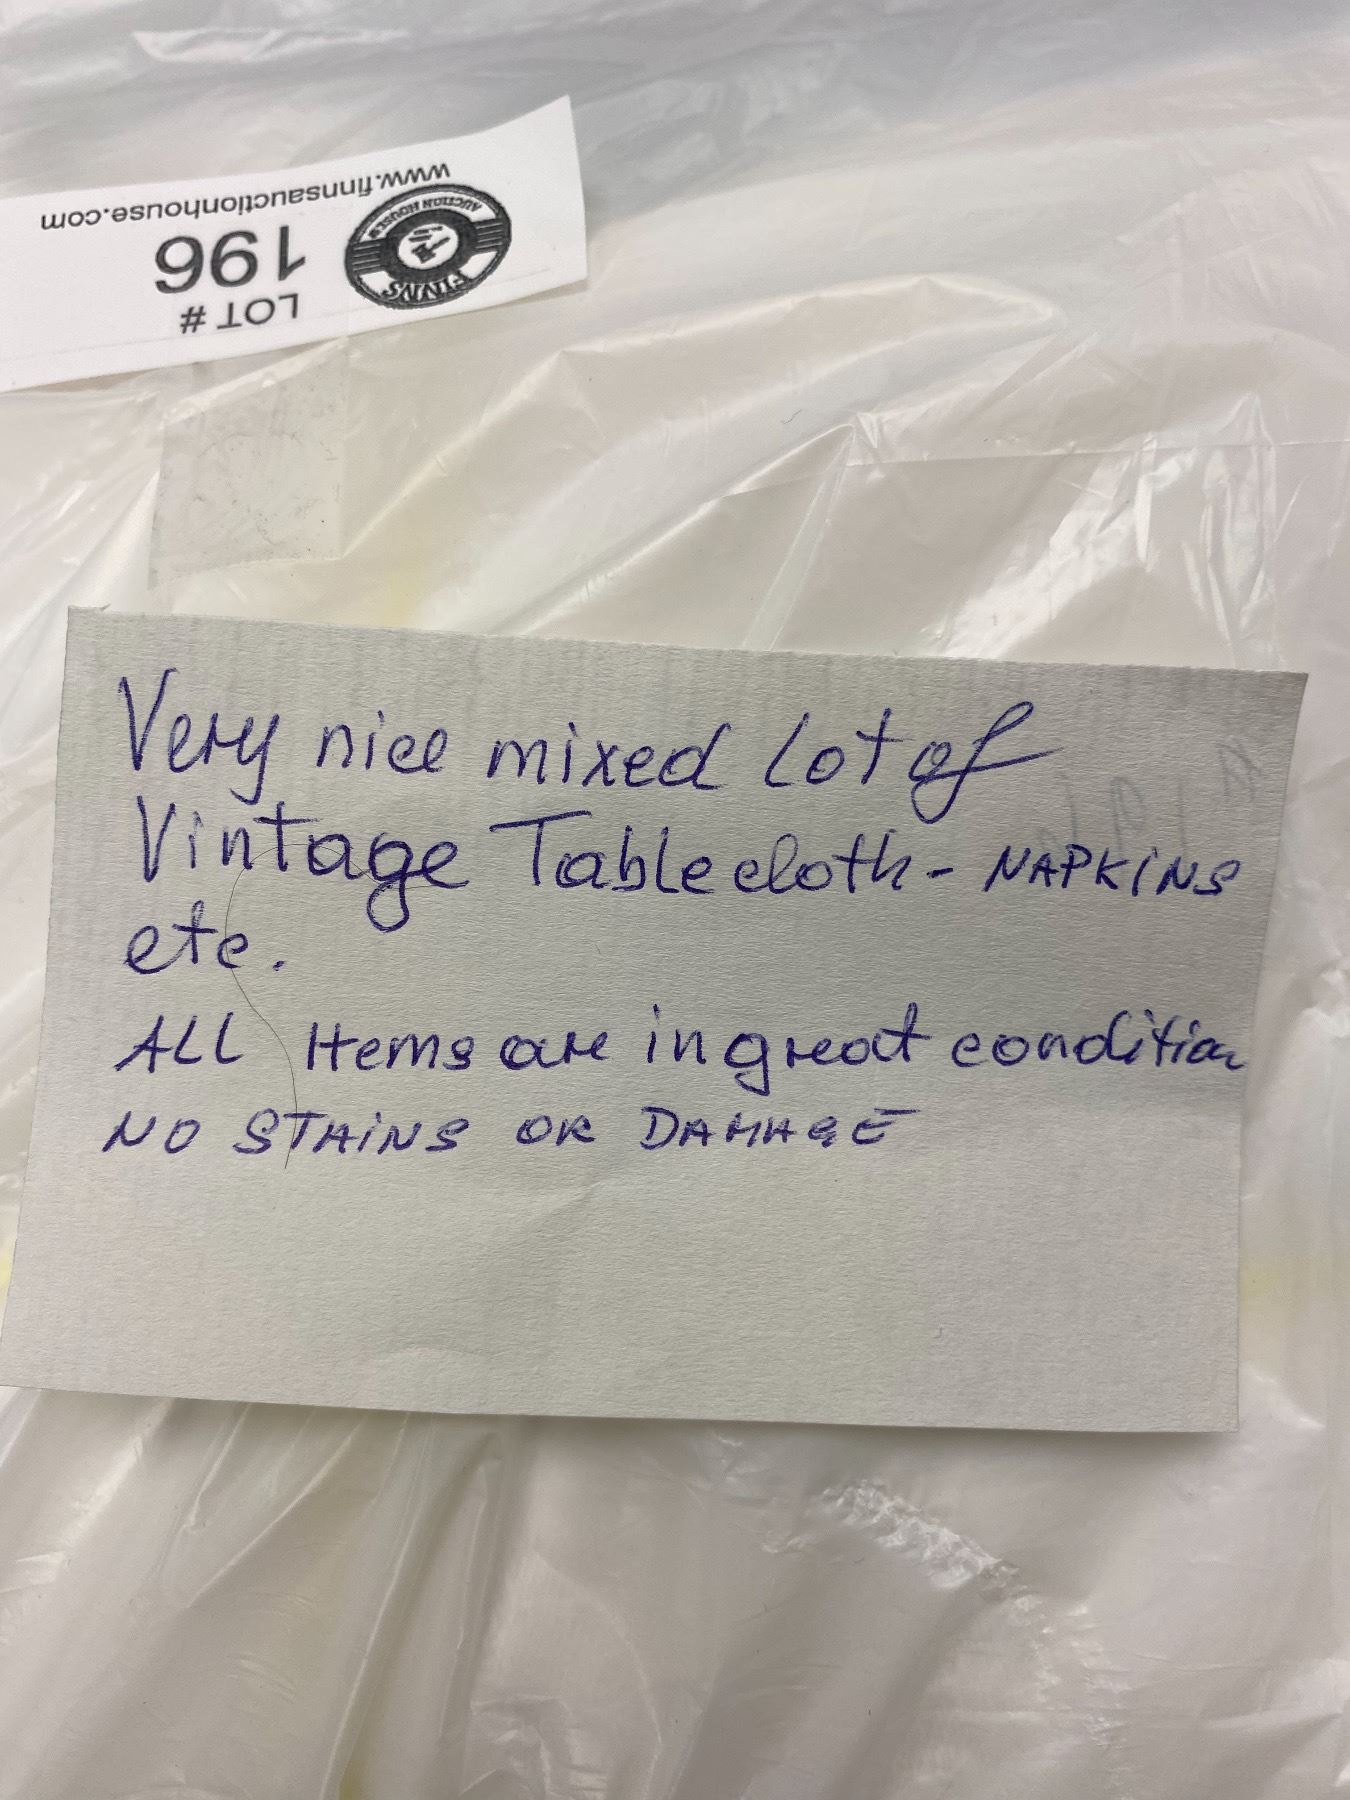 www.finnsauctionhouse.com
LOT #
196
FINNS
AUCTION HOUSE
Very nice mixed Lot of
Vintage Tablecloth - NAPKINS
etc.
ALL Items are in great condition
NO STAINS OR DAMAGE